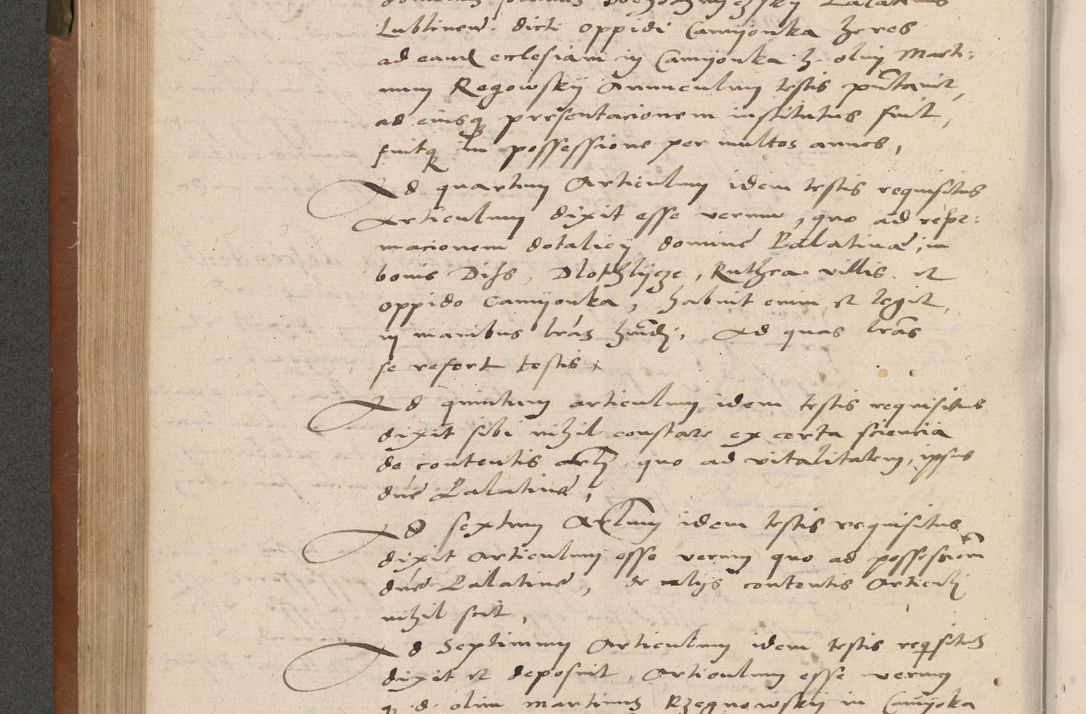 Lublinen. dicti oppidi Camyonka heres
ad eand ecclesiam in Camyonka h. olim Marti:
num Rzegowskij Armiculum testis putauit,
ad eiusq presentacionem institutus fuit,
fuitq in possessione per multos annos,
Ad quartum Articulum idem testis requisitus
Articulum dixit esse verum, quo ad refor:
macionem dotalicij domine Palatine, in
bonis villis et
oppido Camyonka, habuit enim et legit,
in manibus lras hmoi, Ad quas lras
se refert testis.
Ad quintum articulum idem testis requisitus
dixit sibi nihil constare ex certa sciencia
de contentis artli quo ad vitalitatem, ipsius
dne Palatine,
Ad sextum Artlum idem testis requisitus
dixit Articulum esse verum quo ad possessionem
dne Palatine, de alijs contentis Articuli
nihil scit,
Ad Septimum Articulum idem testis reqsitus
dixit et deposuit, Articulum esse verum
q. d. olim Martinus Rzegnowskij in Camyoka